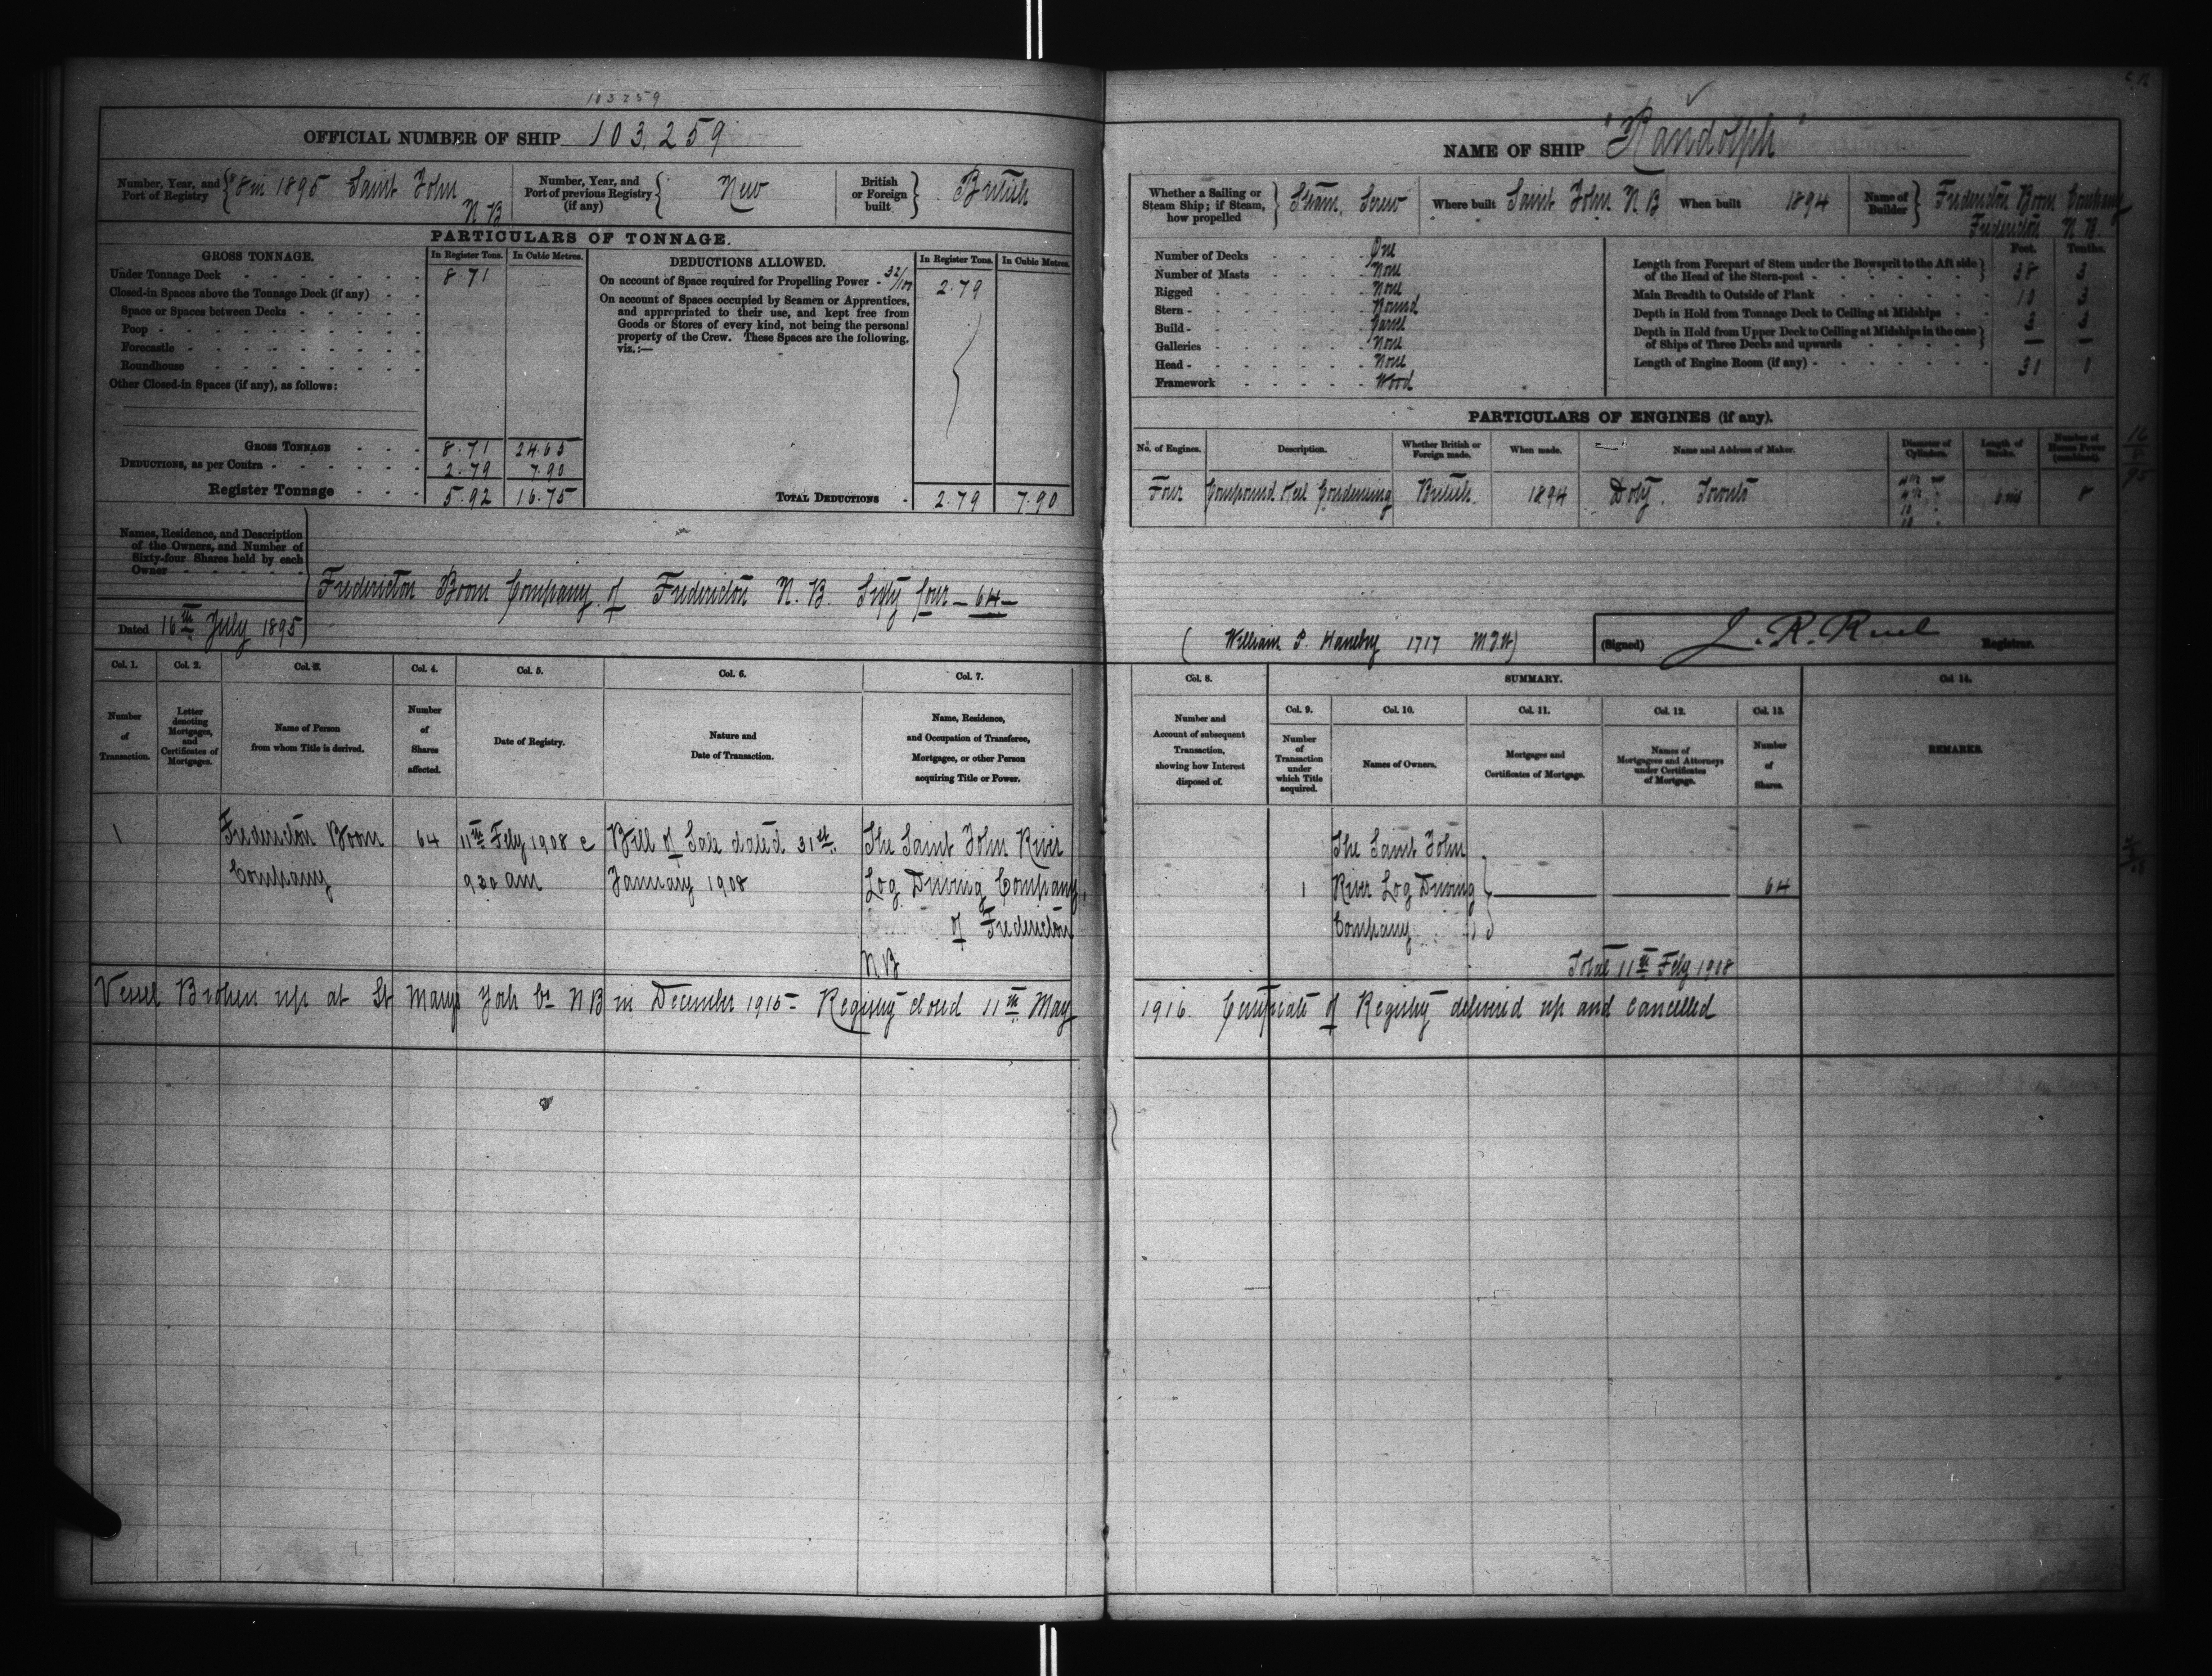 103259
OFFICIAL NUMBER OF SHIP 103,259
Number, Year, and Port of Registry { 8 in 1895 Saint John N B
Number, Year, and Port of previous Registry (if any) { New
British or Foreign built } British
PARTICULARS OF TONNAGE.
GROSS TONNAGE. In Register Tons. In Cubic Metres.
Under Tonnage Deck 8.71
Closed-in Spaces above the Tonnage Deck (if any)
Space or Spaces between Decks
Poop
Forecastle
Roundhouse
Other Closed-in Spaces (if any), as follows:
GROSS TONNAGE 8.71 24.65
DEDUCTIONS, as per Contra 2.79 7.90
Register Tonnage 5.92 16.75
DEDUCTIONS ALLOWED. In Register Tons. In Cubic Metres.
On account of Space required for Propelling Power - 32/100 2.79
On account of Spaces occupied by Seamen or Apprentices,
and appropriated to their use, and kept free from
Goods or Stores of every kind, not being the personal
property of the Crew. These Spaces are the following,
viz.:—
TOTAL DEDUCTIONS 2.79 7.90
Names, Residence, and Description
of the Owners, and Number of
Sixty-four Shares held by each
Owner
Fredericton Boom Company of Fredericton N. B. Sixty four — 64 —
Dated 16th July 1895
Col. 1. Col. 2. Col. 3. Col. 4. Col. 5. Col. 6. Col. 7.
Number of Transaction.
Letter denoting Mortgages, and Certificates of Mortgages.
Name of Person from whom Title is derived.
Number of Shares affected.
Date of Registry.
Nature and Date of Transaction.
Name, Residence, and Occupation of Transferee, Mortgagee, or other Person acquiring Title or Power.
1 Fredericton Boom 64 11th Feby 1908 @ Bill of Sale dated 31st The Saint John River
Company 9 30 am January 1908 Log Driving Company,
of Fredericton
N B
Vessel Broken up at St Marys York Co N B in December 1915 - Registry closed 11th May
NAME OF SHIP "Randolph"
Whether a Sailing or Steam Ship; if Steam, how propelled } Steam, Screw
Where built Saint John N B
When built 1894
Name of Builder } Fredericton Boom Company
Fredericton N B
Number of Decks One
Number of Masts None
Rigged None
Stern Round
Build Carvel
Galleries None
Head None
Framework Wood
Feet. Tenths.
Length from Forepart of Stem under the Bowsprit to the Aft side
of the Head of the Stern-post 38 3
Main Breadth to Outside of Plank 10 3
Depth in Hold from Tonnage Deck to Ceiling at Midships 3 3
Depth in Hold from Upper Deck to Ceiling at Midships in the case
of Ships of Three Decks and upwards — —
Length of Engine Room (if any) 31 1
PARTICULARS OF ENGINES (if any).
No. of Engines. Description. Whether British or Foreign made. When made. Name and Address of Maker. Diameter of Cylinders. Length of Stroke. Number of Horse Power (combined).
Four Compound Keel Condensing British 1894 Doty. Toronto 6 ins 8
(William P. Haneby 1717 M.I.W)
(Signed) J. R. Ruel Registrar.
Col. 8. SUMMARY. Col. 14.
Col. 9. Col. 10. Col. 11. Col. 12. Col. 13.
Number and Account of subsequent Transaction, showing how Interest disposed of.
Number of Transaction under which Title acquired.
Names of Owners.
Mortgages and Certificates of Mortgage.
Names of Mortgagees and Attorneys under Certificates of Mortgage.
Number of Shares.
REMARKS.
The Saint John
1 River Log Driving 64
Company
Total 11th Feby 1908
1916. Certificate of Registry delivered up and cancelled